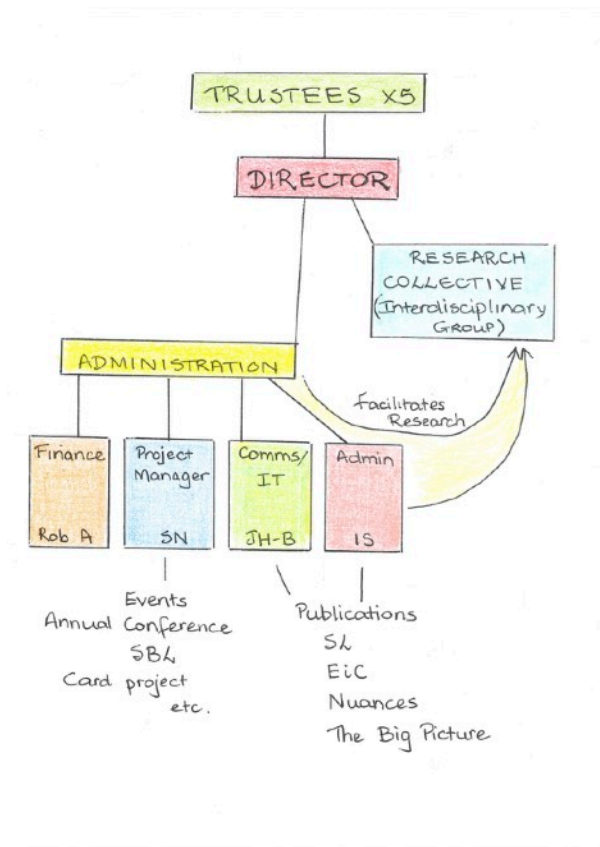 TRUSTEES X5
DIRECTOR
RESEARCH
COLLECTIVE
(Interdisciplinary
GROUP)
ADMINISTRATION
Facilitates
Research
Finance
Rob A
Project
Manager
SN
Comms/
IT
JH-B
Admin
IS
Events
Annual Conference
SBL
Card project
etc.
Publications
SL
EiC
Nuances
The Big Picture